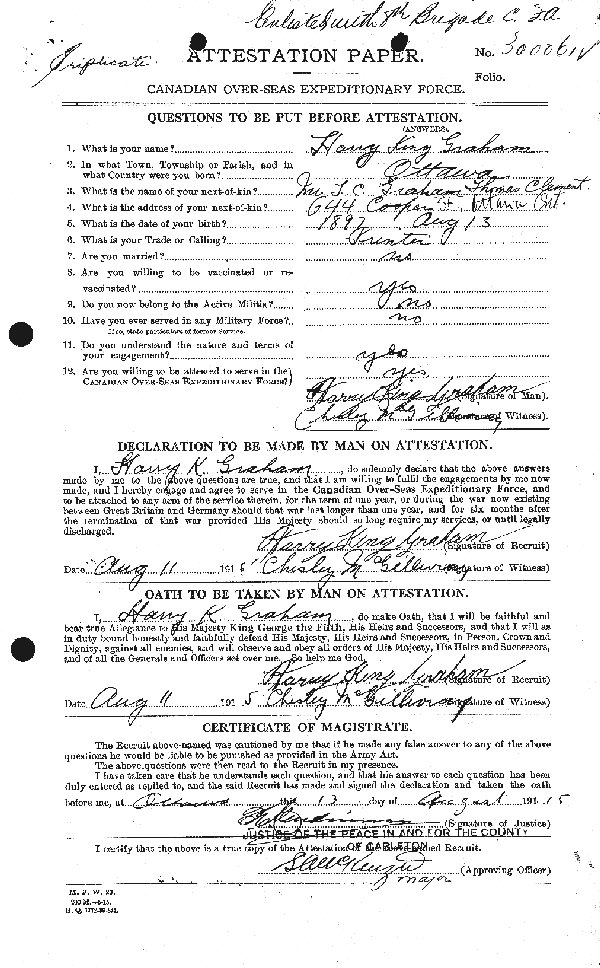 Enlisted with 8th Brigade C.F.A.
Triplicate.
ATTESTATION PAPER.
No.
Folio.
CANADIAN OVER-SEAS EXPEDITIONARY FORCE.
QUESTIONS TO BE PUT BEFORE ATTESTATION.
(ANSWERS)
1. What is your name? Harry King Graham
2. In what Town, Township or Parish, and in
what Country were you born? Ottawa
3. What is the name of your next-of-kin? Mr T. C. Graham Thomas Clement
4. What is the address of your next-of-kin? 644 Cooper St. Ottawa Ont.
5. What is the date of your birth? 1897 Aug 13
6. What is your Trade or Calling? Printer
7. Are you married? no
8. Are you willing to be vaccinated or re-
vaccinated? yes
9. Do you now belong to the Active Militia? no
10. Have you ever served in any Military Force? no
If so, state particulars of former Service.
11. Do you understand the nature and terms of
your engagement? yes
12. Are you willing to be attested to serve in the yes
CANADIAN OVER-SEAS EXPEDITIONARY FORCE?
Harry King Graham (Signature of Man).
Chesley (Signature of Witness).
DECLARATION TO BE MADE BY MAN ON ATTESTATION.
I, Harry K. Graham, do solemnly declare that the above answers
made by me to the above questions are true, and that I am willing to fulfil the engagements by me now
made, and I hereby engage and agree to serve in the Canadian Over-Seas Expeditionary Force, and
to be attached to any arm of the service therein, for the term of one year, or during the war now existing
between Great Britain and Germany should that war last longer than one year, and for six months after
the termination of that war provided His Majesty should so long require my services, or until legally
discharged.
Harry King Graham (Signature of Recruit)
Date Aug 11 1915 Chesley (Signature of Witness)
OATH TO BE TAKEN BY MAN ON ATTESTATION.
I, Harry K. Graham, do make Oath, that I will be faithful and
bear true Allegiance to His Majesty King George the Fifth, His Heirs and Successors, and that I will as
in duty bound honestly and faithfully defend His Majesty, His Heirs and Successors, in Person, Crown and
Dignity, against all enemies, and will observe and obey all orders of His Majesty, His Heirs and Successors,
and of all the Generals and Officers set over me. So help me God.
Harry King Graham (Signature of Recruit)
Date Aug 11 1915 Chesley (Signature of Witness)
CERTIFICATE OF MAGISTRATE.
The Recruit above-named was cautioned by me that if he made any false answer to any of the above
questions he would be liable to be punished as provided in the Army Act.
The above questions were then read to the Recruit in my presence.
I have taken care that he understands each question, and that his answer to each question has been
duly entered as replied to, and the said Recruit has made and signed the declaration and taken the oath
before me, at Ottawa this 13 day of August 191 15
(Signature of Justice)
JUSTICE OF THE PEACE IN AND FOR THE COUNTY
OF CARLETON
I certify that the above is a true copy of the Attestation of the above-named Recruit.
(Approving Officer)
Major
M. F. W. 23.